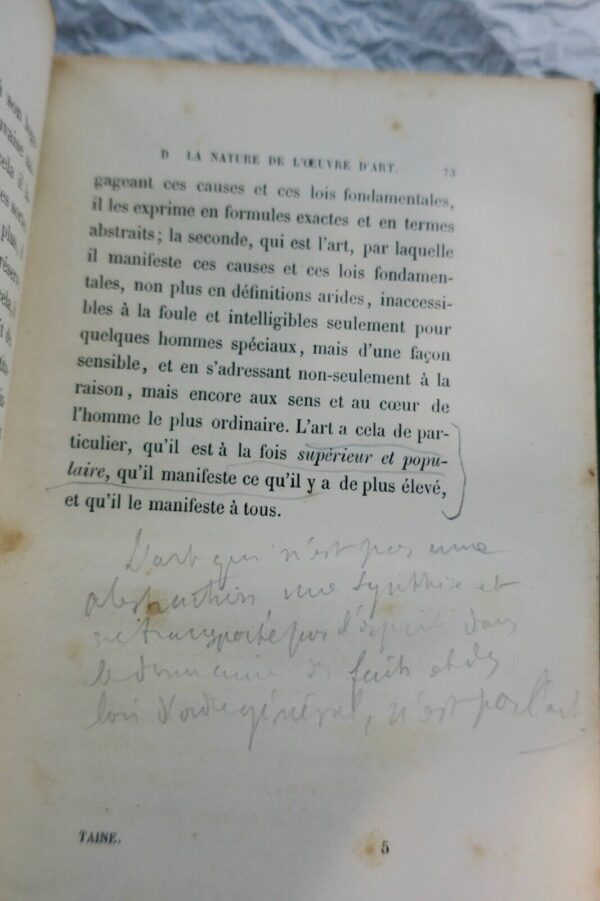 à son
cela il
plus,
D LA NATURE DE L'ŒUVRE D'ART. 73
gageant ces causes et ces lois fondamentales,
il les exprime en formules exactes et en termes
abstraits; la seconde, qui est l'art, par laquelle
il manifeste ces causes et ces lois fondamen-
tales, non plus en définitions arides, inaccessi-
bles à la foule et intelligibles seulement pour
quelques hommes spéciaux, mais d'une façon
sensible, et en s'adressant non-seulement à la
raison, mais encore aux sens et au cœur de
l'homme le plus ordinaire. L'art a cela de par-
ticulier, qu'il est à la fois supérieur et popu-
laire, qu'il manifeste ce qu'il y a de plus élevé,
et qu'il le manifeste à tous.
L'art qui n'est pas une
abstraction, une synthèse et
ne transporte pas l'esprit dans
le domaine des faits et des
lois d'ordre général, n'est pas l'art
TAINE. 5